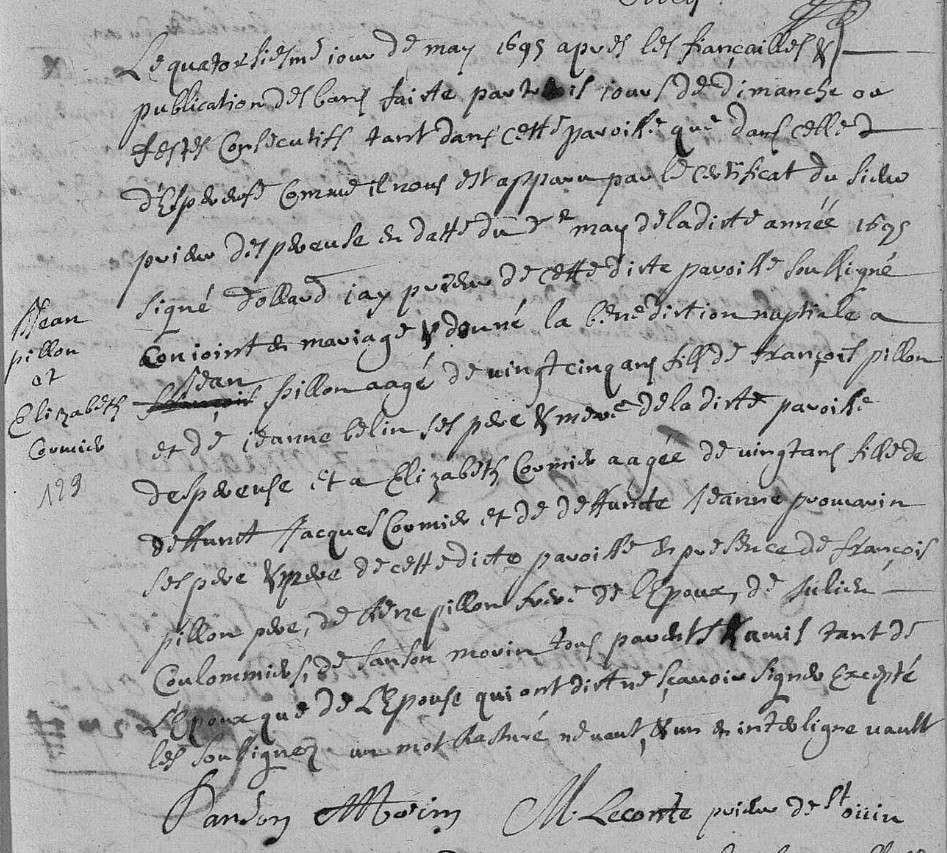 Le quatorsiesme jour de may 1695 apres les fiançailles &
publication des bans faite par trois jours de dimanche ou
Jean
pillon
et
Elizabeth
Cormier
festes Consecutifs tant dans cette paroisse que dans celle
d'Espereuse Comme il nous est apparu par le certificat du sieur
prieur despereuse en datte du may de la dicte année 1695
signé dollard jay prieur de cette dicte paroisse soussigné
Conjoint en mariage & donné la benediction nuptiale a
Jean pillon aagé de vingt cinq ans fils de françois pillon
et de jeanne belin ses pere & mere de la dicte paroisse
despereuse et a Elizabeth Cormier aagée de vingt ans fille de
deffunct Jacques Cormier et de deffuncte Jeanne
ses pere & mere de cette dicte paroisse en presence de françois
pillon pere, de René pillon frere de l'Epoux, de Julien
Coulommiers, de sanson morin tous parents & amis tant de
l'Epoux que de l'Epouse qui ont dict ne sçavoir signer Excepté
les soussignez un mot rasturé ne vaut, & un en interligne vault
Sanson Morin M. Leconte prieur de St ouin